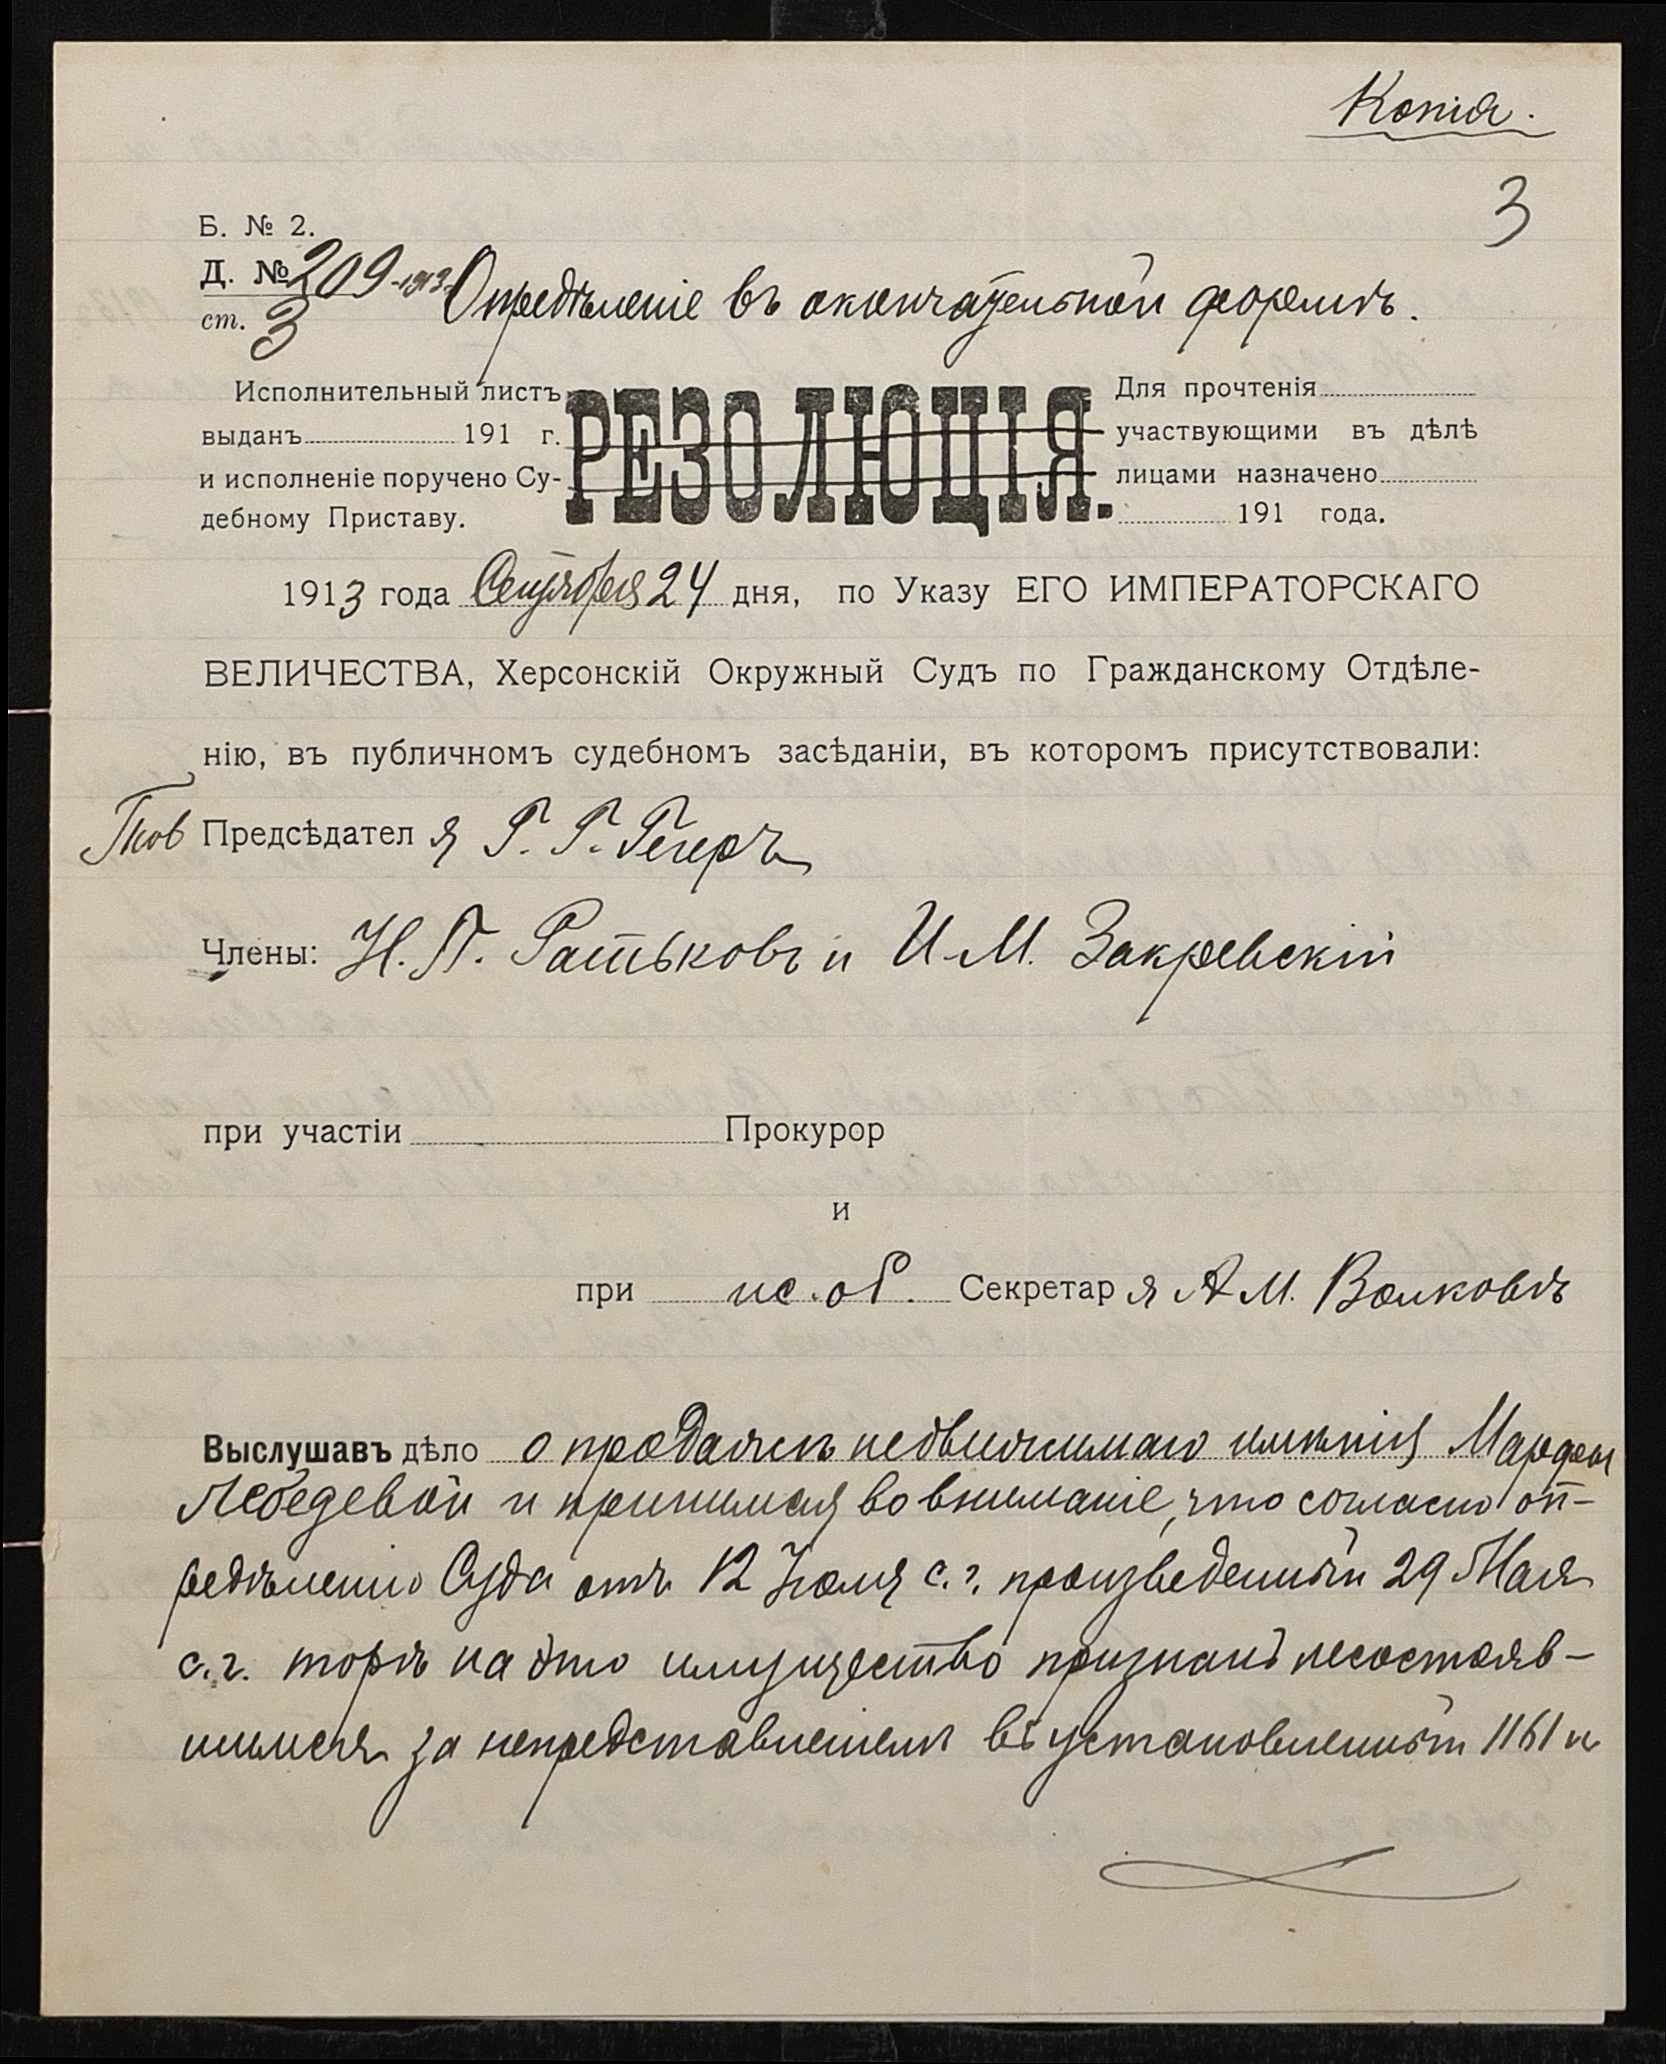 Копія.
3
Б. № 2.
Д. № 209-1913
ст. 3
Опредѣленіе въ окончательной формѣ.
Исполнительный листъ
выданъ 191 г.
и исполненіе поручено Су-
дебному Приставу.
РЕЗОЛЮЦІЯ.
Для прочтенія
участвующими въ дѣлѣ
лицами назначено
191 года.
1913 года Сентября 24 дня, по Указу ЕГО ИМПЕРАТОРСКАГО
ВЕЛИЧЕСТВА, Херсонскій Окружный Судъ по Гражданскому Отдѣле-
нію, въ публичномъ судебномъ засѣданіи, въ которомъ присутствовали:
Тов Предсѣдателя Г. Г. Гегеръ
Члены: Н. П. Ратьковъ и И. М. Закревскій
при участіи Прокурор
и
при ис. об. Секретаря А. М. Волковѣ
Выслушавъ дѣло о продажѣ недвижимаго имѣнія Марфы
Лебедевой и принимая во вниманіе, что согласно оп-
редѣленію Суда отъ 12 Іюля с. г. произведенный 29 Мая
с. г. торгъ на это имущество признанъ несостояв-
шимся за непредставленіемъ въ установленный 1161 и